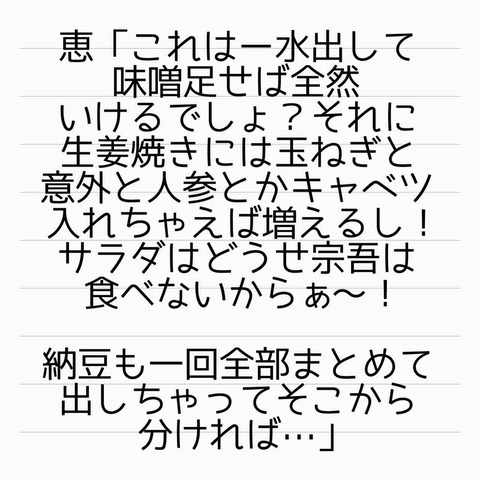 恵「これは一水出して
味噌足せば全然
いけるでしょ？それに
生姜焼きには玉ねぎと
意外と人参とかキャベツ
入れちゃえば増えるし！
サラダはどうせ宗吾は
食べないからぁ〜！
納豆も一回全部まとめて
出しちゃってそこから
分ければ…」